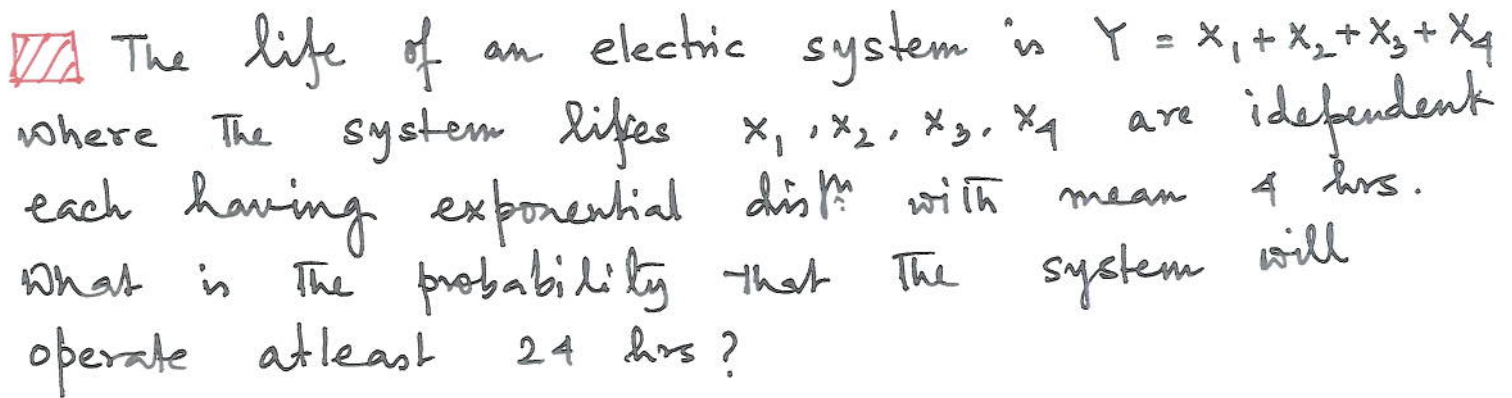 The life of an electric system is Y = X₁ + X₂ + X₃ + X₄
where the system lifes X₁, X₂, X₃, X₄ are idependent
each having exponential distⁿ. with mean 4 hrs.
What is the probability that the system will
operate atleast 24 hrs?